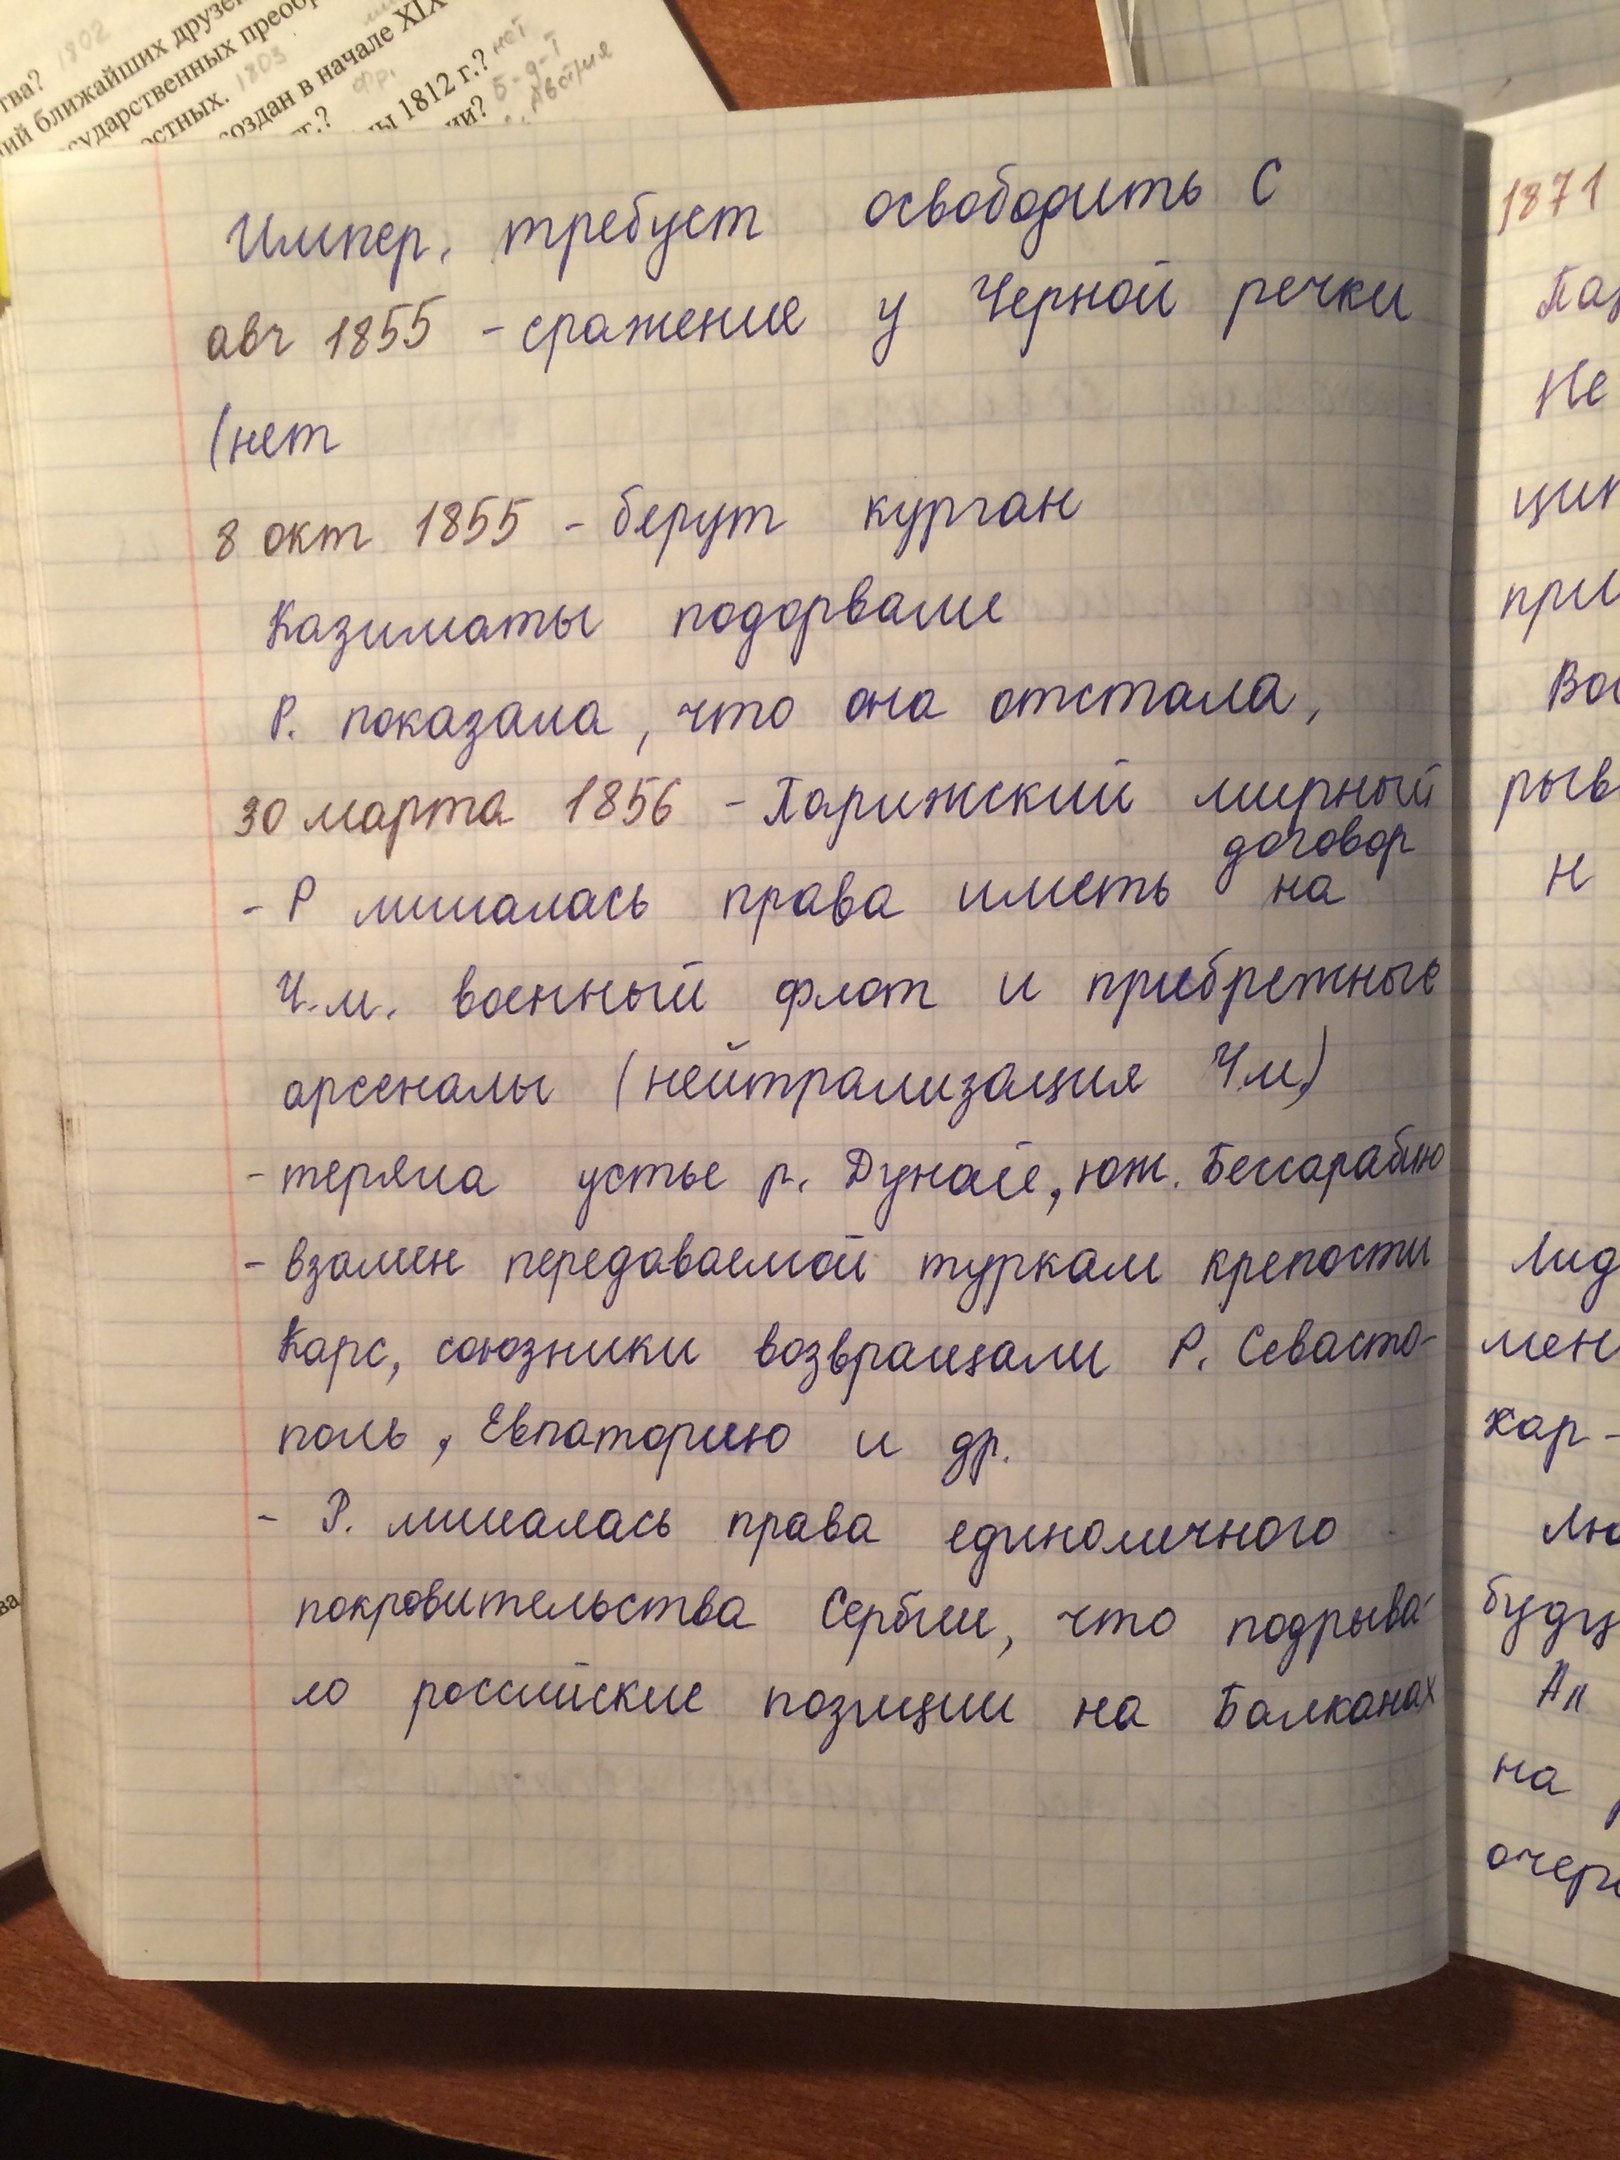 тва? 1802
ий ближайших друзе
сударственных преобр
остных. 1803
создан в начале XIX
гг.? Фр.
ы 1812 г.? нет
ии? 5-9-Т
Австрия
Импер. требует освободить С
авг 1855 - сражение у Черной речки
(нет
8 окт 1855 - берут курган
Казиматы подорвали
Р. показала, что она отстала,
30 марта 1856 - Парижский мирный
договор
- Р лишалась права иметь на
Ч.м. военный флот и прибрежные
арсеналы (нейтрализация Ч.м.)
- теряла устье р. Дунай, юж. Бессарабию
- взамен передаваемой туркам крепости
Карс, союзники возвращали Р. Севасто-
поль, Евпаторию и др.
- Р. лишалась права единоличного
покровительства Сербии, что подрыва-
ло российские позиции на Балканах
1871
Не
при
рыв
Н
Лид
мен
хар-
Лю
буду
Ал
на
очер
ва